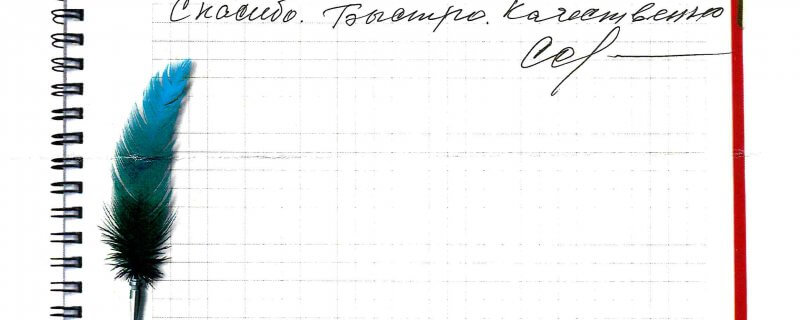 Спасибо. Быстро. Качественно